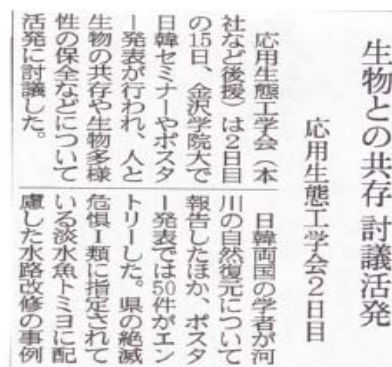 生物との共存 討議活発
応用生態工学会2日目
応用生態工学会（本
社など後援）は2日目
の15日、金沢学院大で
日韓セミナーやポスタ
ー発表が行われ、人と
生物の共存や生物多様
性の保全などについて
活発に討議した。
日韓両国の学者が河
川の自然復元について
報告したほか、ポスタ
ー発表では50件がエン
トリーした。県の絶滅
危惧Ⅰ類に指定されて
いる淡水魚トミヨに配
慮した水路改修の事例